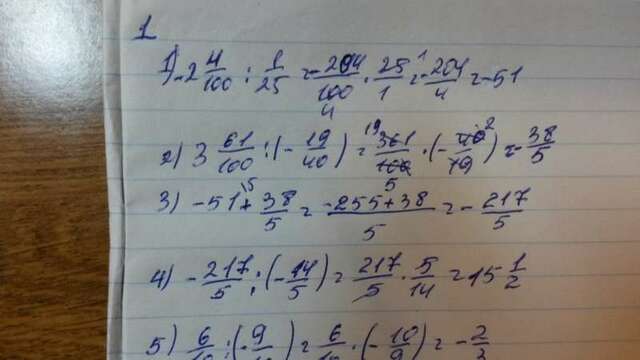 1
1) -2 4/100 : 1/25 = -204/100 4 · 25 1/1 = -204/4 = -51
2) 3 61/100 : (- 19/40) = 19 361/100 5 · (- 40 2/19) = - 38/5
3) -51 5 + 38/5 = -255+38/5 = - 217/5
4) - 217/5 : (- 14/5) = 217/5 · 5/14 = 15 1/2
5) 6/10 : (- 9/10) = 6/10 · (- 10/9) = - 2/3